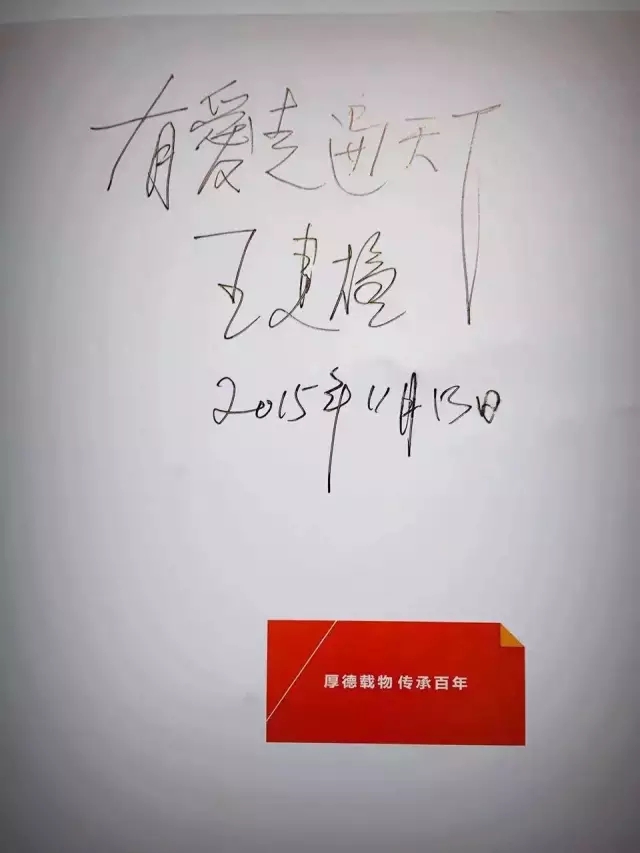 有愛走遍天下
王建
2015年11月13日
厚德载物 传承百年